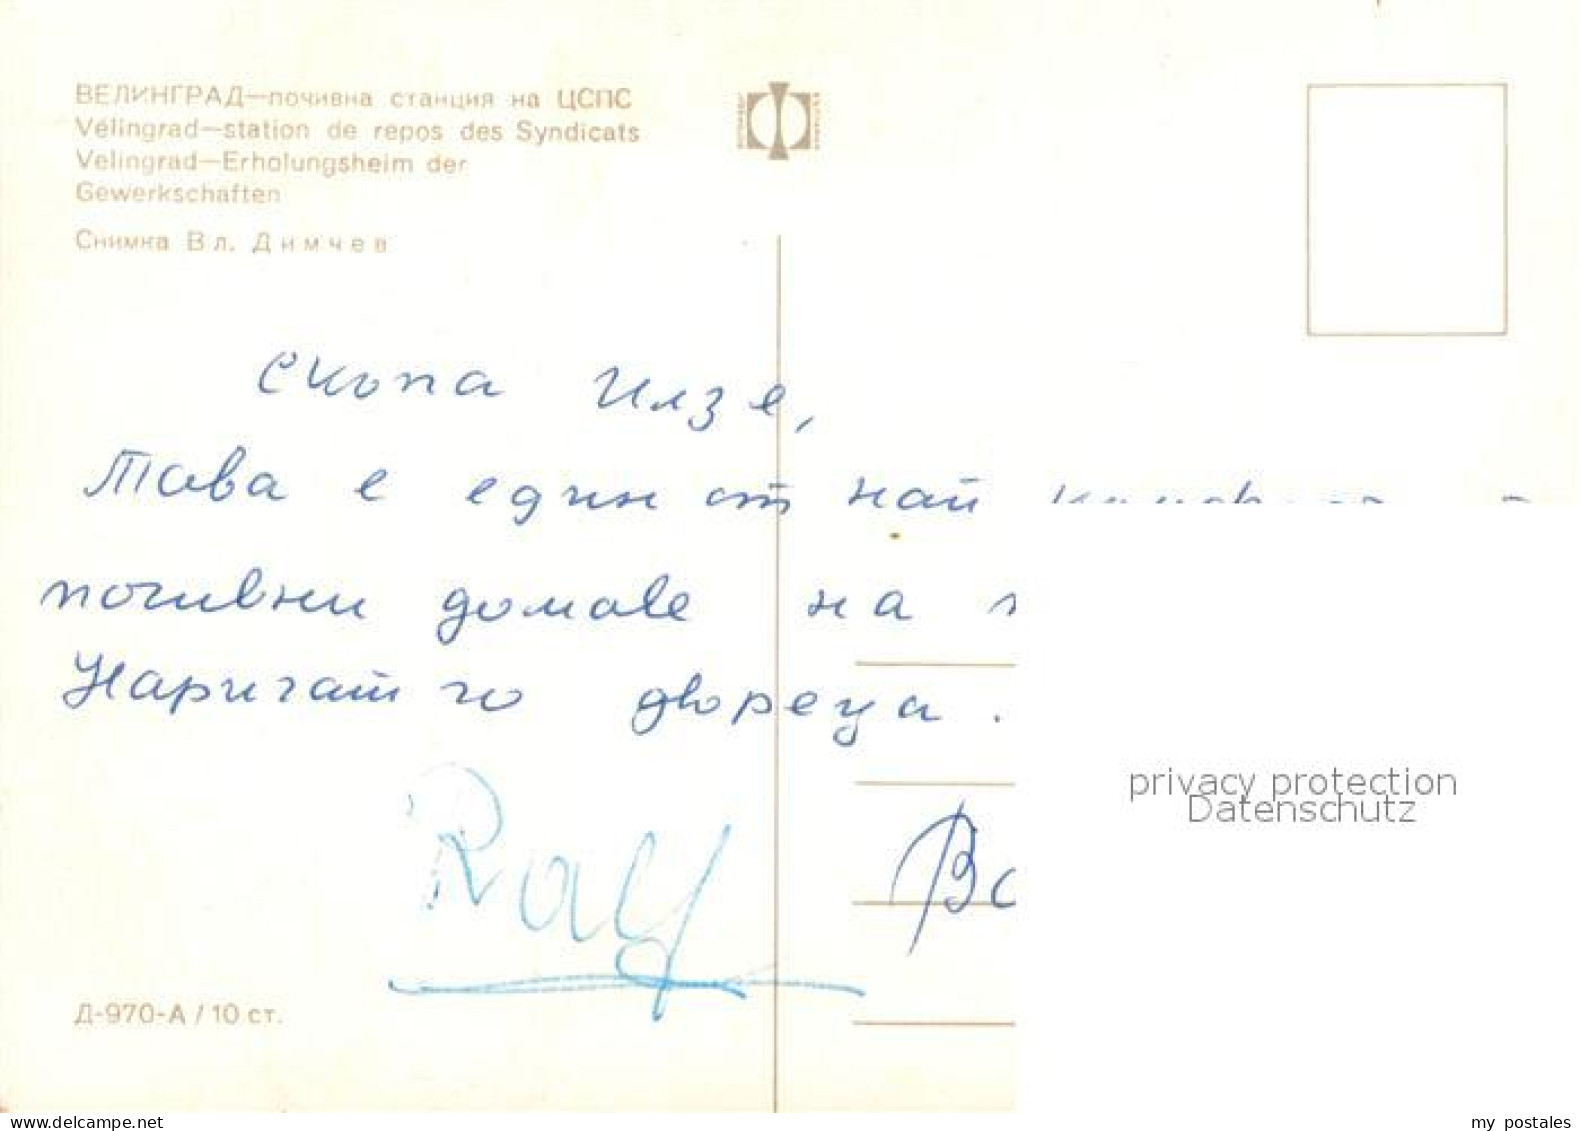 ВЕЛИНГРАД—почивна станция на ЦСПС
Vélingrad—station de repos des Syndicats
Velingrad—Erholungsheim der
Gewerkschaften
Снимка Вл. Димчев
Скъпа Илзе,
Това е един от най
почивни домове на
Наричат го двореца.
privacy protection
Datenschutz
Ray
Д-970-А / 10 ст.
my postales